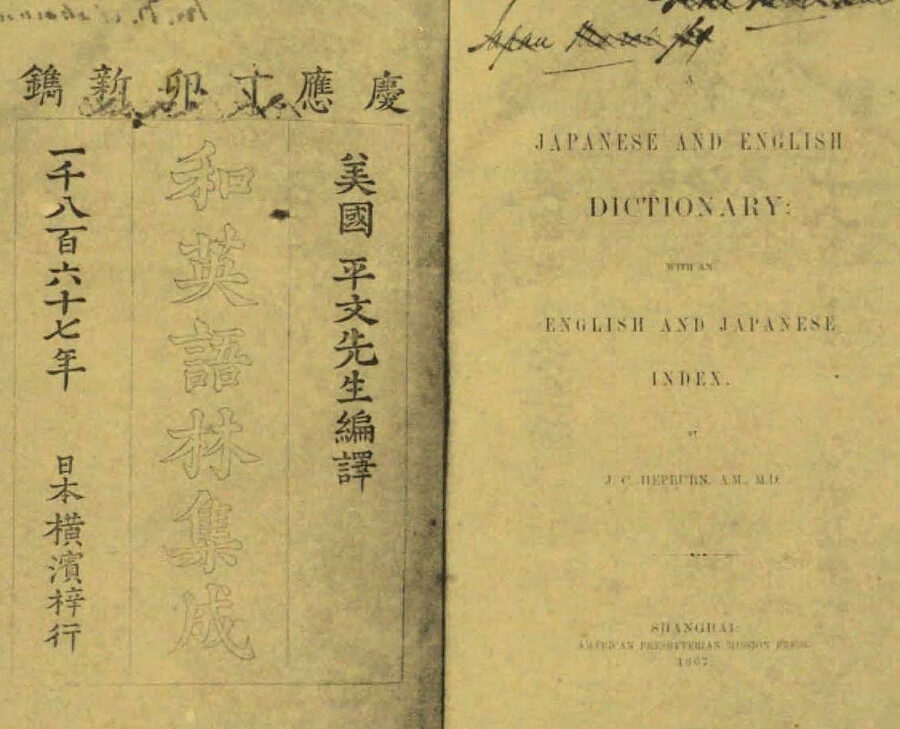 慶應丁卯新鐫
美國 平文先生編譯
和英語林集成
一千八百六十七年 日本橫濱梓行
Japan
A
JAPANESE AND ENGLISH
DICTIONARY:
WITH AN
ENGLISH AND JAPANESE
INDEX.
BY
J. C. HEPBURN, A.M., M.D.
SHANGHAI:
AMERICAN PRESBYTERIAN MISSION PRESS.
1867.